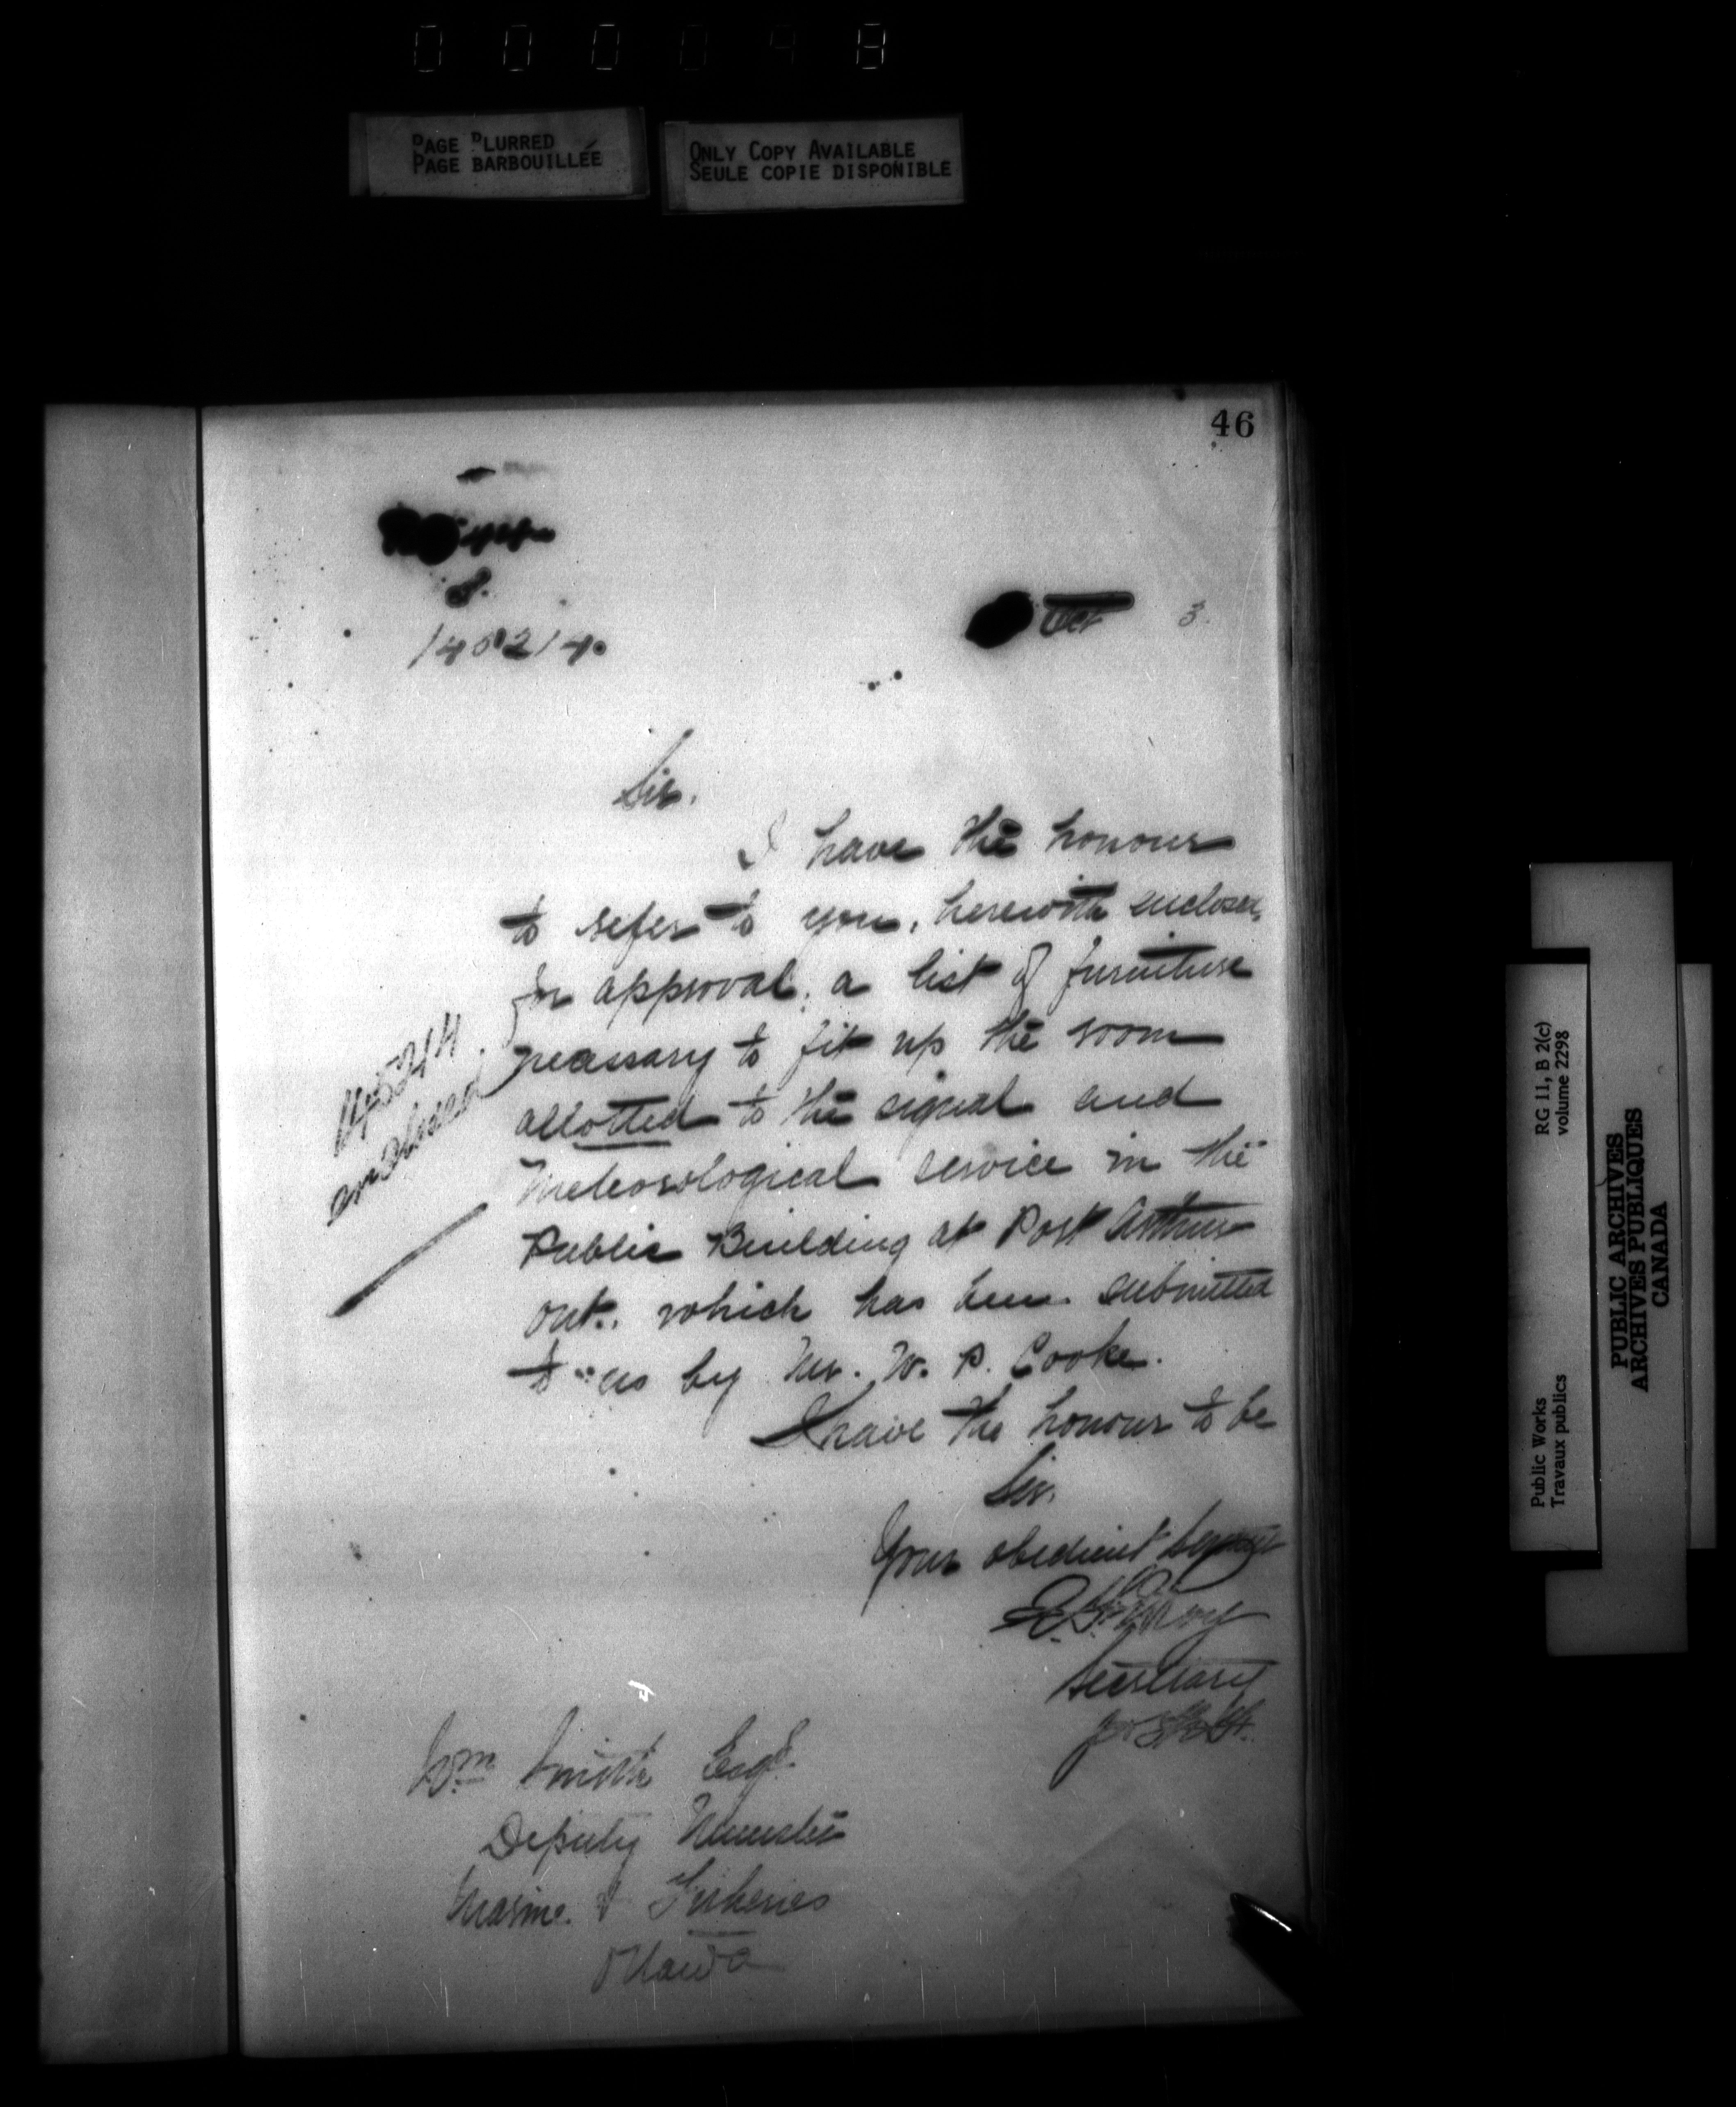 PAGE BLURRED
PAGE BARBOUILLÉE
ONLY COPY AVAILABLE
SEULE COPIE DISPONIBLE
46
145214.
Oct 3.
Sir.
I have the honour
to refer to you, herewith enclosed,
for approval, a list of furniture
necessary to fit up the room
allotted to the signal and
Meteorological service in the
Public Building at Port Arthur
Ont. which has been submitted
to us by Mr. W. P. Cooke.
I have the honour to be
Sir.
Your obedient Servant
Secretary
145214
enclosed.
Wm Smith Esqr.
Deputy Minister
Marine & Fisheries
Ottawa
Public Works
Travaux publics
RG 11, B 2(c)
volume 2298
PUBLIC ARCHIVES
ARCHIVES PUBLIQUES
CANADA